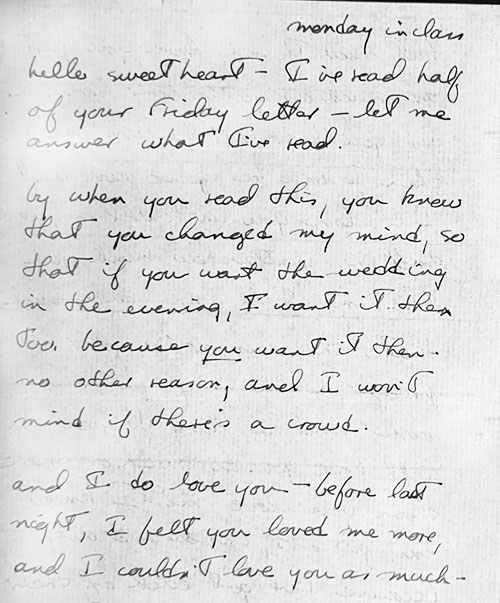 monday in class
hello sweetheart - I've read half
of your Friday letter - let me
answer what I've read.
by when you read this, you knew
that you changed my mind, so
that if you want the wedding
in the evening, I want it then
too. because you want it then -
no other reason, and I won't
mind if there's a crowd.
and I do love you - before last
night, I felt you loved me more,
and I couldn't love you as much -